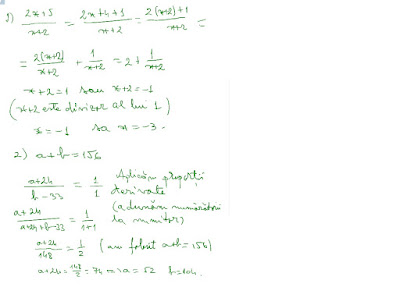 1) (2x+5)/(x+2) = (2x+4+1)/(x+2) = (2(x+2)+1)/(x+2) =
= 2(x+2)/(x+2) + 1/(x+2) = 2 + 1/(x+2)
x+2=1 sau x+2=-1
(x+2 este divizor al lui 1)
x=-1 sa x=-3.
2) a+b=156
(a+24)/(b-33) = 1/1 Aplicăm proporții derivate
(adunăm numărători la numitor)
(a+24)/(a+24+b-33) = 1/(1+1)
(a+24)/148 = 1/2 (am folosit a+b=156)
a+24=148/2=74 => a=52 b=104.